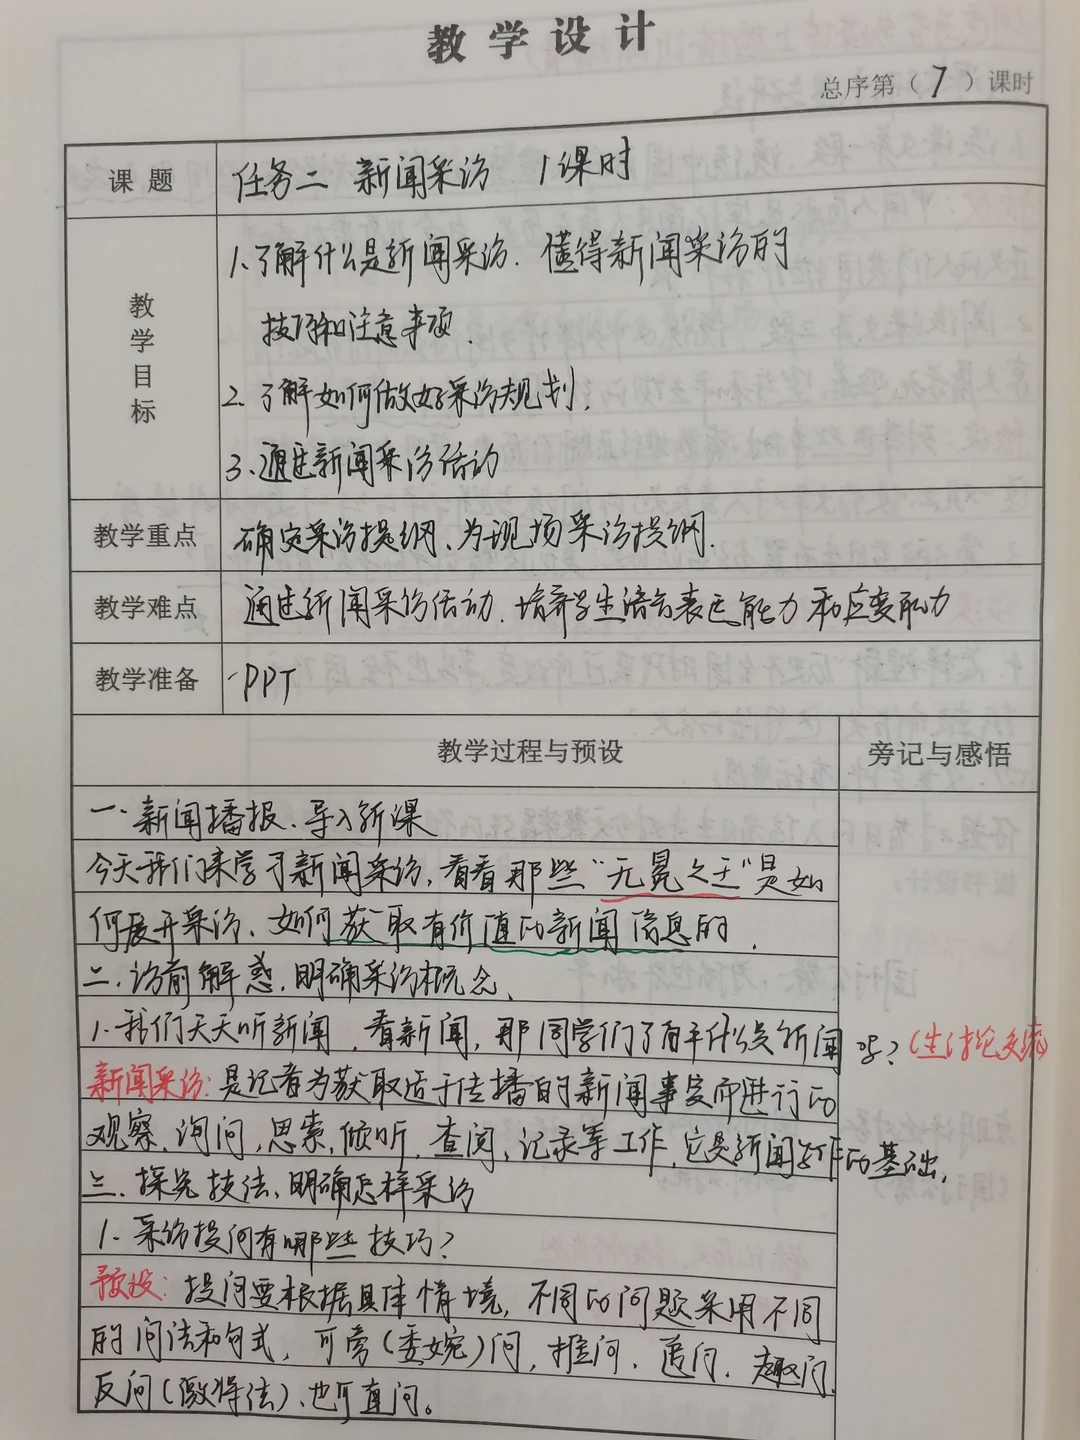 教学设计
总序第（7）课时
课题 任务二 新闻采访 1课时
教学目标
1.了解什么是新闻采访、懂得新闻采访的
技巧和注意事项.
2.了解如何做好采访规划.
3.通过新闻采访活动
教学重点 确定采访提纲、为现场采访提纲.
教学难点 通过新闻采访活动、培养学生语言表达能力和应变能力
教学准备 PPT
教学过程与预设 旁记与感悟
一、新闻播报、导入新课
今天我们来学习新闻采访，看看那些“无冕之王”是如
何展开采访、如何获取有价值的新闻信息的.
二、访前解惑、明确采访概念、
1.我们天天听新闻、看新闻，那同学们了解什么是新闻吗？（生讨论交流）
新闻采访：是记者为获取适于传播的新闻事实而进行的
观察、询问、思索、倾听、查阅、记录等工作，它是新闻写作的基础.
三、探究技法、明确怎样采访
1.采访提问有哪些技巧？
预设：提问要根据具体情境，不同的问题采用不同
的问法和句式，可旁（委婉）问，推问、追问、趣问
反问（激将法）、也可直问。